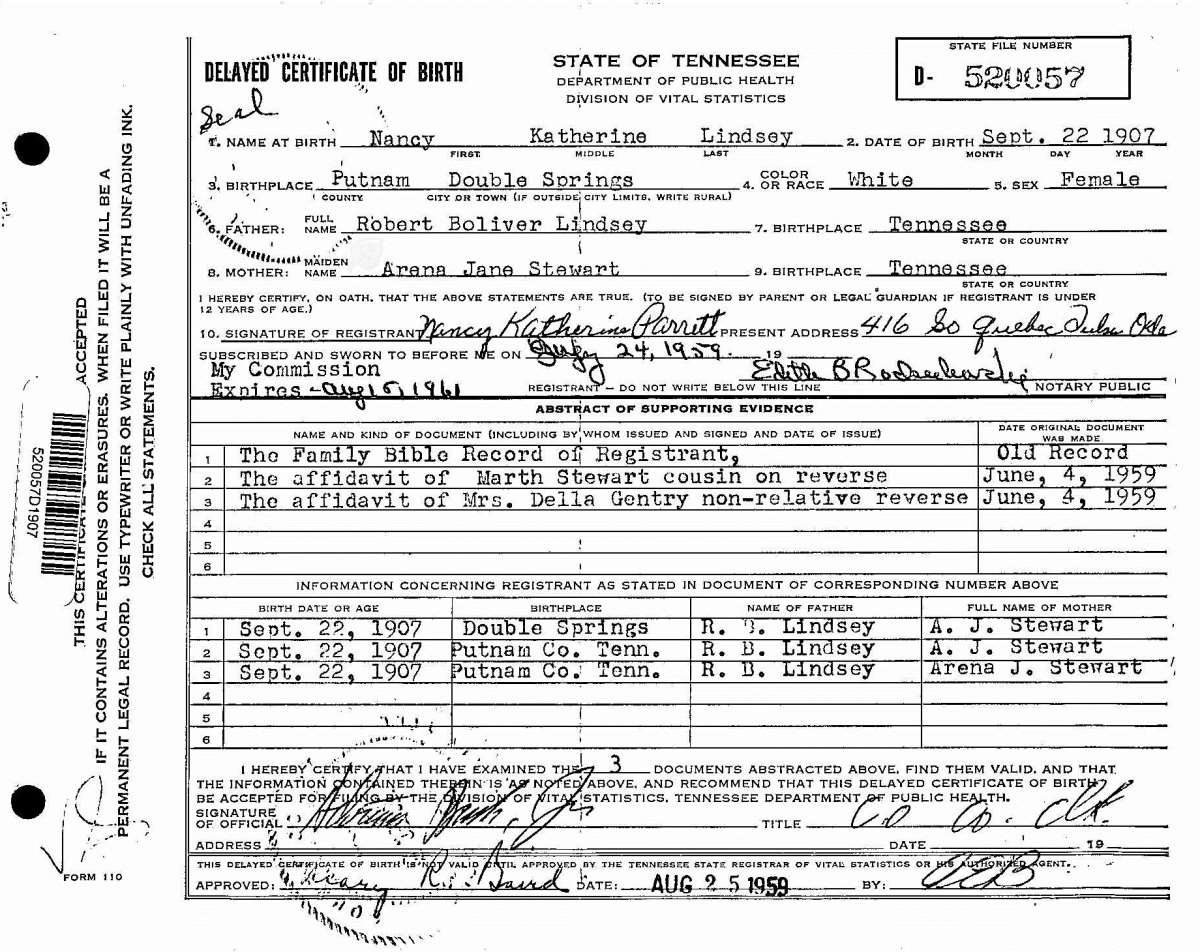 DELAYED CERTIFICATE OF BIRTH
STATE OF TENNESSEE
DEPARTMENT OF PUBLIC HEALTH
DIVISION OF VITAL STATISTICS
STATE FILE NUMBER
D- 520057
Seal
1. NAME AT BIRTH Nancy Katherine Lindsey 2. DATE OF BIRTH Sept. 22 1907
FIRST MIDDLE LAST MONTH DAY YEAR
3. BIRTHPLACE Putnam Double Springs 4. COLOR OR RACE White 5. SEX Female
COUNTY CITY OR TOWN (IF OUTSIDE CITY LIMITS, WRITE RURAL)
6. FATHER: FULL NAME Robert Boliver Lindsey 7. BIRTHPLACE Tennessee
STATE OR COUNTRY
8. MOTHER: MAIDEN NAME Arena Jane Stewart 9. BIRTHPLACE Tennessee
STATE OR COUNTRY
I HEREBY CERTIFY, ON OATH, THAT THE ABOVE STATEMENTS ARE TRUE. (TO BE SIGNED BY PARENT OR LEGAL GUARDIAN IF REGISTRANT IS UNDER
12 YEARS OF AGE.)
10. SIGNATURE OF REGISTRANT Nancy Katherine Parrett PRESENT ADDRESS 416 So Quebec Tulsa Okla
SUBSCRIBED AND SWORN TO BEFORE ME ON July 24, 1959. 19
My Commission
Expires - Aug 1961 Edith B NOTARY PUBLIC
REGISTRANT – DO NOT WRITE BELOW THIS LINE
ABSTRACT OF SUPPORTING EVIDENCE
NAME AND KIND OF DOCUMENT (INCLUDING BY WHOM ISSUED AND SIGNED AND DATE OF ISSUE) DATE ORIGINAL DOCUMENT WAS MADE
1 The Family Bible Record of Registrant, Old Record
2 The affidavit of Marth Stewart cousin on reverse June, 4, 1959
3 The affidavit of Mrs. Della Gentry non-relative reverse June, 4, 1959
4
5
6
INFORMATION CONCERNING REGISTRANT AS STATED IN DOCUMENT OF CORRESPONDING NUMBER ABOVE
BIRTH DATE OR AGE BIRTHPLACE NAME OF FATHER FULL NAME OF MOTHER
1 Sept. 22, 1907 Double Springs R. B. Lindsey A. J. Stewart
2 Sept. 22, 1907 Putnam Co. Tenn. R. B. Lindsey A. J. Stewart
3 Sept. 22, 1907 Putnam Co. Tenn. R. B. Lindsey Arena J. Stewart
4
5
6
I HEREBY CERTIFY THAT I HAVE EXAMINED THE 3 DOCUMENTS ABSTRACTED ABOVE, FIND THEM VALID, AND THAT
THE INFORMATION CONTAINED THEREIN IS AS NOTED ABOVE, AND RECOMMEND THAT THIS DELAYED CERTIFICATE OF BIRTH
BE ACCEPTED FOR FILING BY THE DIVISION OF VITAL STATISTICS, TENNESSEE DEPARTMENT OF PUBLIC HEALTH.
SIGNATURE
OF OFFICIAL TITLE Co. Clk.
ADDRESS DATE 19
THIS DELAYED CERTIFICATE OF BIRTH IS NOT VALID UNTIL APPROVED BY THE TENNESSEE STATE REGISTRAR OF VITAL STATISTICS OR HIS AUTHORIZED AGENT.
APPROVED: R. Baird DATE: AUG 25 1959 BY:
FORM 110
520057D1907
THIS CERTIFICATE ACCEPTED
IF IT CONTAINS ALTERATIONS OR ERASURES. WHEN FILED IT WILL BE A
PERMANENT LEGAL RECORD. USE TYPEWRITER OR WRITE PLAINLY WITH UNFADING INK.
CHECK ALL STATEMENTS.